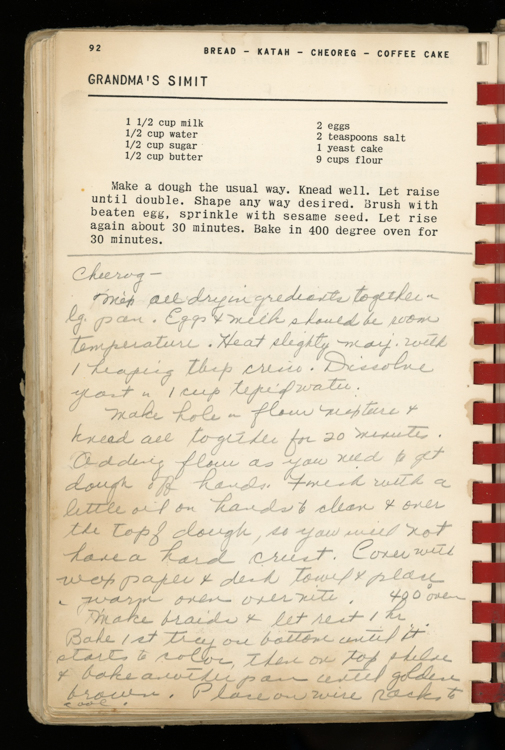 92
BREAD - KATAH - CHEOREG - COFFEE CAKE
GRANDMA'S SIMIT
1 1/2 cup milk
1/2 cup water
1/2 cup sugar
1/2 cup butter
2 eggs
2 teaspoons salt
1 yeast cake
9 cups flour
Make a dough the usual way. Knead well. Let raise
until double. Shape any way desired. Brush with
beaten egg, sprinkle with sesame seed. Let rise
again about 30 minutes. Bake in 400 degree oven for
30 minutes.
Cheorog -
Mix all dry ingredients together in
lg. pan. Eggs & milk should be room
temperature. Heat slightly may. with
1 heaping tbsp crisco. Dissolve
yeast in 1 cup tepid water.
Make hole in flour mixture &
knead all together for 20 minutes.
Adding flour as you need to get
dough off hands. Finish with a
little oil on hands to clean & over
the top of dough, so you will not
have a hard crust. Cover with
wax paper & dish towel & place
in warm oven over nite. 400° oven
Make braids & let rest 1 hr.
Bake 1st tray on bottom until it
starts to color, then on top shelve
& bake another pan until golden
brown. Place on wire racks to
cool.